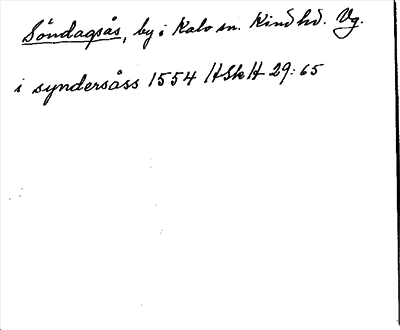 Söndagsås, by i Kalv sn. Kind hd. Vg.
i syndersåss 1554 HSkH 29:65